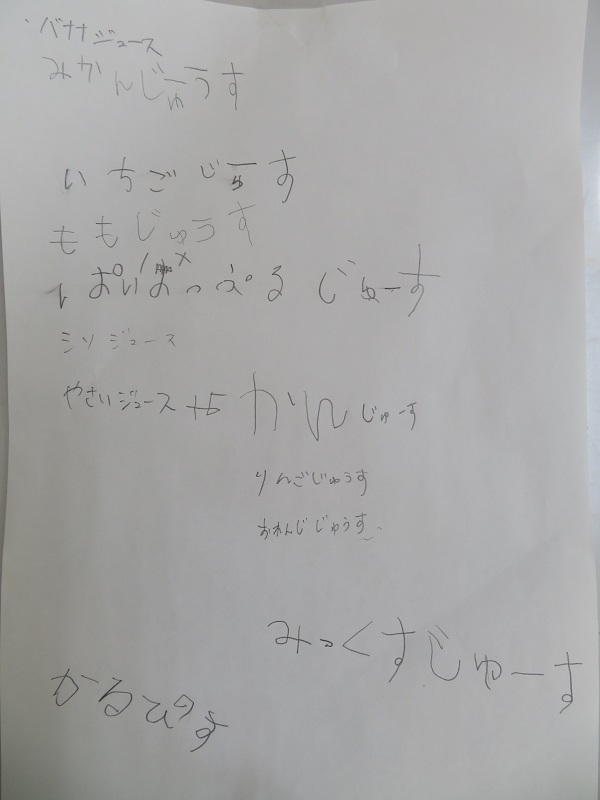 バナナジュース
みかんじゅーうす
いちごじゅーす
ももじゅうす
ぱいなっぷるじゅーす
シソジュース
やさいジュース
かんじゅーす
りんごじゅうす
おれんじじゅうす
みっくすじゅーす
かるぴす